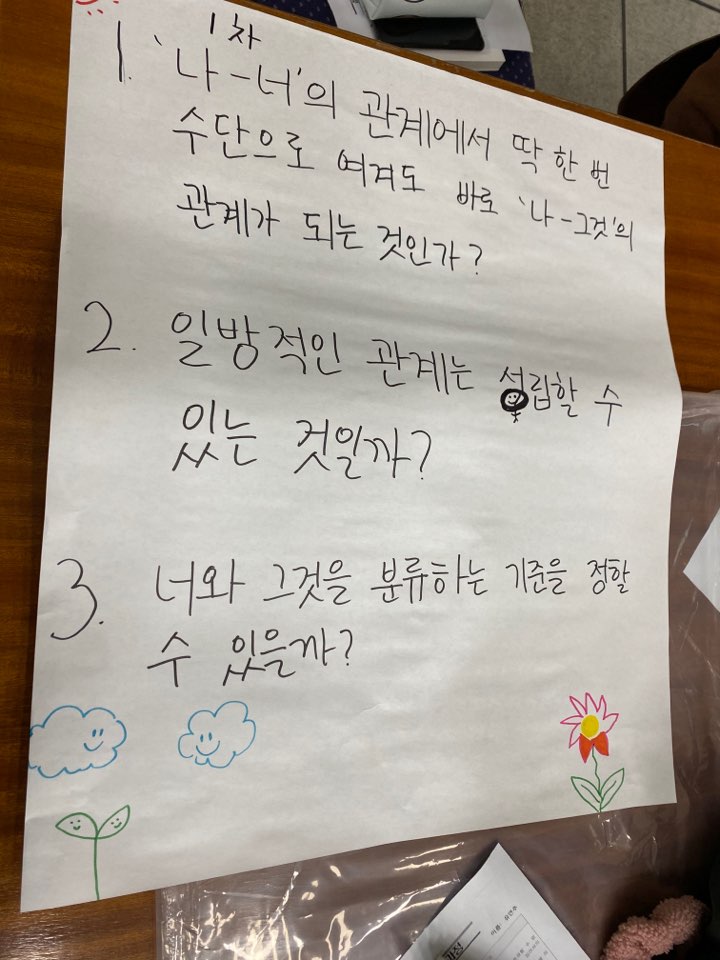 1차
1. '나-너'의 관계에서 딱 한 번
수단으로 여겨도 바로 '나-그것'의
관계가 되는 것인가?
2. 일방적인 관계는 성립할 수
있는 것일까?
3. 너와 그것을 분류하는 기준을 정할
수 있을까?